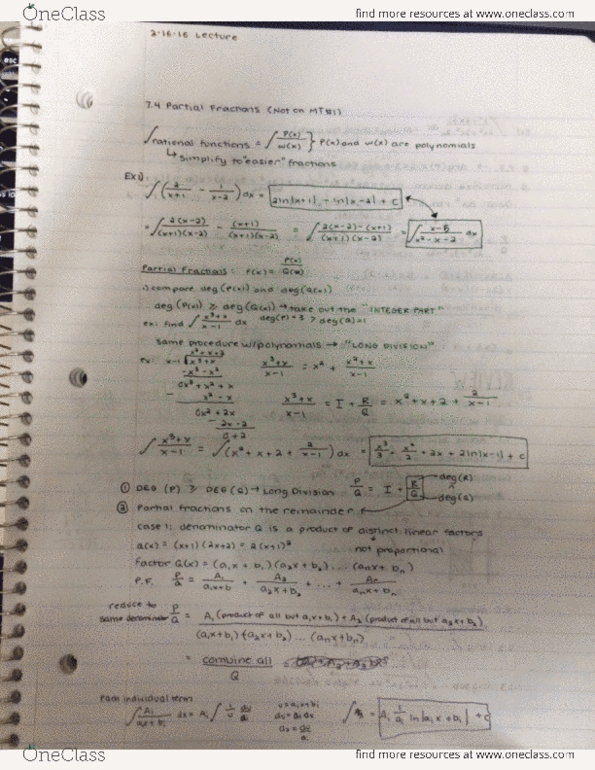 OneClass
find more resources at www.oneclass.com
2-16-16 Lecture
7.4 Partial Fractions (Not on MT#1)
∫rational functions = ∫ P(x)/w(x) } P(x) and w(x) are polynomials
↳ simplify to "easier" fractions
Ex1)
∫(2/(x+1) - 1/(x-2))dx = 2ln|x+1| - ln|x-2| + C
= ∫ 2(x-2)/((x+1)(x-2)) - (x+1)/((x+1)(x-2)) = ∫ (2(x-2)-(x+1))/((x+1)(x-2)) = ∫ (x-5)/(x²-x-2) dx
Partial Fractions: f(x) = P(x)/Q(x)
1) compare deg(P(x)) and deg(Q(x))
deg(P(x)) ≥ deg(Q(x)) → take out the "INTEGER PART"
ex: Find ∫ (x³+x)/(x-1) dx deg(P)=3 > deg(Q)=1
same procedure w/polynomials → "LONG DIVISION"
ex: x-1 x³+x
(x³+x)/(x-1) = x² + (x²+x)/(x-1)
-x³-x²
0x³+x²+x
- x²-x
0x²+2x
(x³+x)/(x-1) = I + R/Q = x²+x+2+ 2/(x-1)
- 2x-2
0+2
∫ (x³+x)/(x-1) = ∫(x²+x+2+ 2/(x-1))dx = x³/3 + x²/2 + 2x + 2ln|x-1| + C
① DEG (P) ≥ DEG (Q) → Long Division P/Q = I + R/Q deg(R) deg(Q)
② Partial fractions on the remainder
case 1: denominator Q is a product of distinct linear factors
Q(x) = (x+1)(2x+2) = 2(x+1)² not proportional
Factor Q(x) = (a₁x+b₁)(a₂x+b₂)...(aₙx+bₙ)
P.F. P/Q = A₁/(a₁x+b) + A₂/(a₂x+b₂) + ... + Aₙ/(aₙx+bₙ)
reduce to same denominator P/Q = A₁(product of all but a₁x+b₁) + A₂(product of all but a₂x+b₂)
(a₁x+b₁)(a₂x+b₂)...(aₙx+bₙ)
= combine all / Q
Each individual term
∫ A₁/(a₁x+b₁) dx = A₁ ∫ 1/u du/a₁ u=a₁x+b₁ du=a₁dx dx=du/a = A₁ 1/a₁ ln|a₁x+b₁| + C
OneClass
find more resources at www.oneclass.com